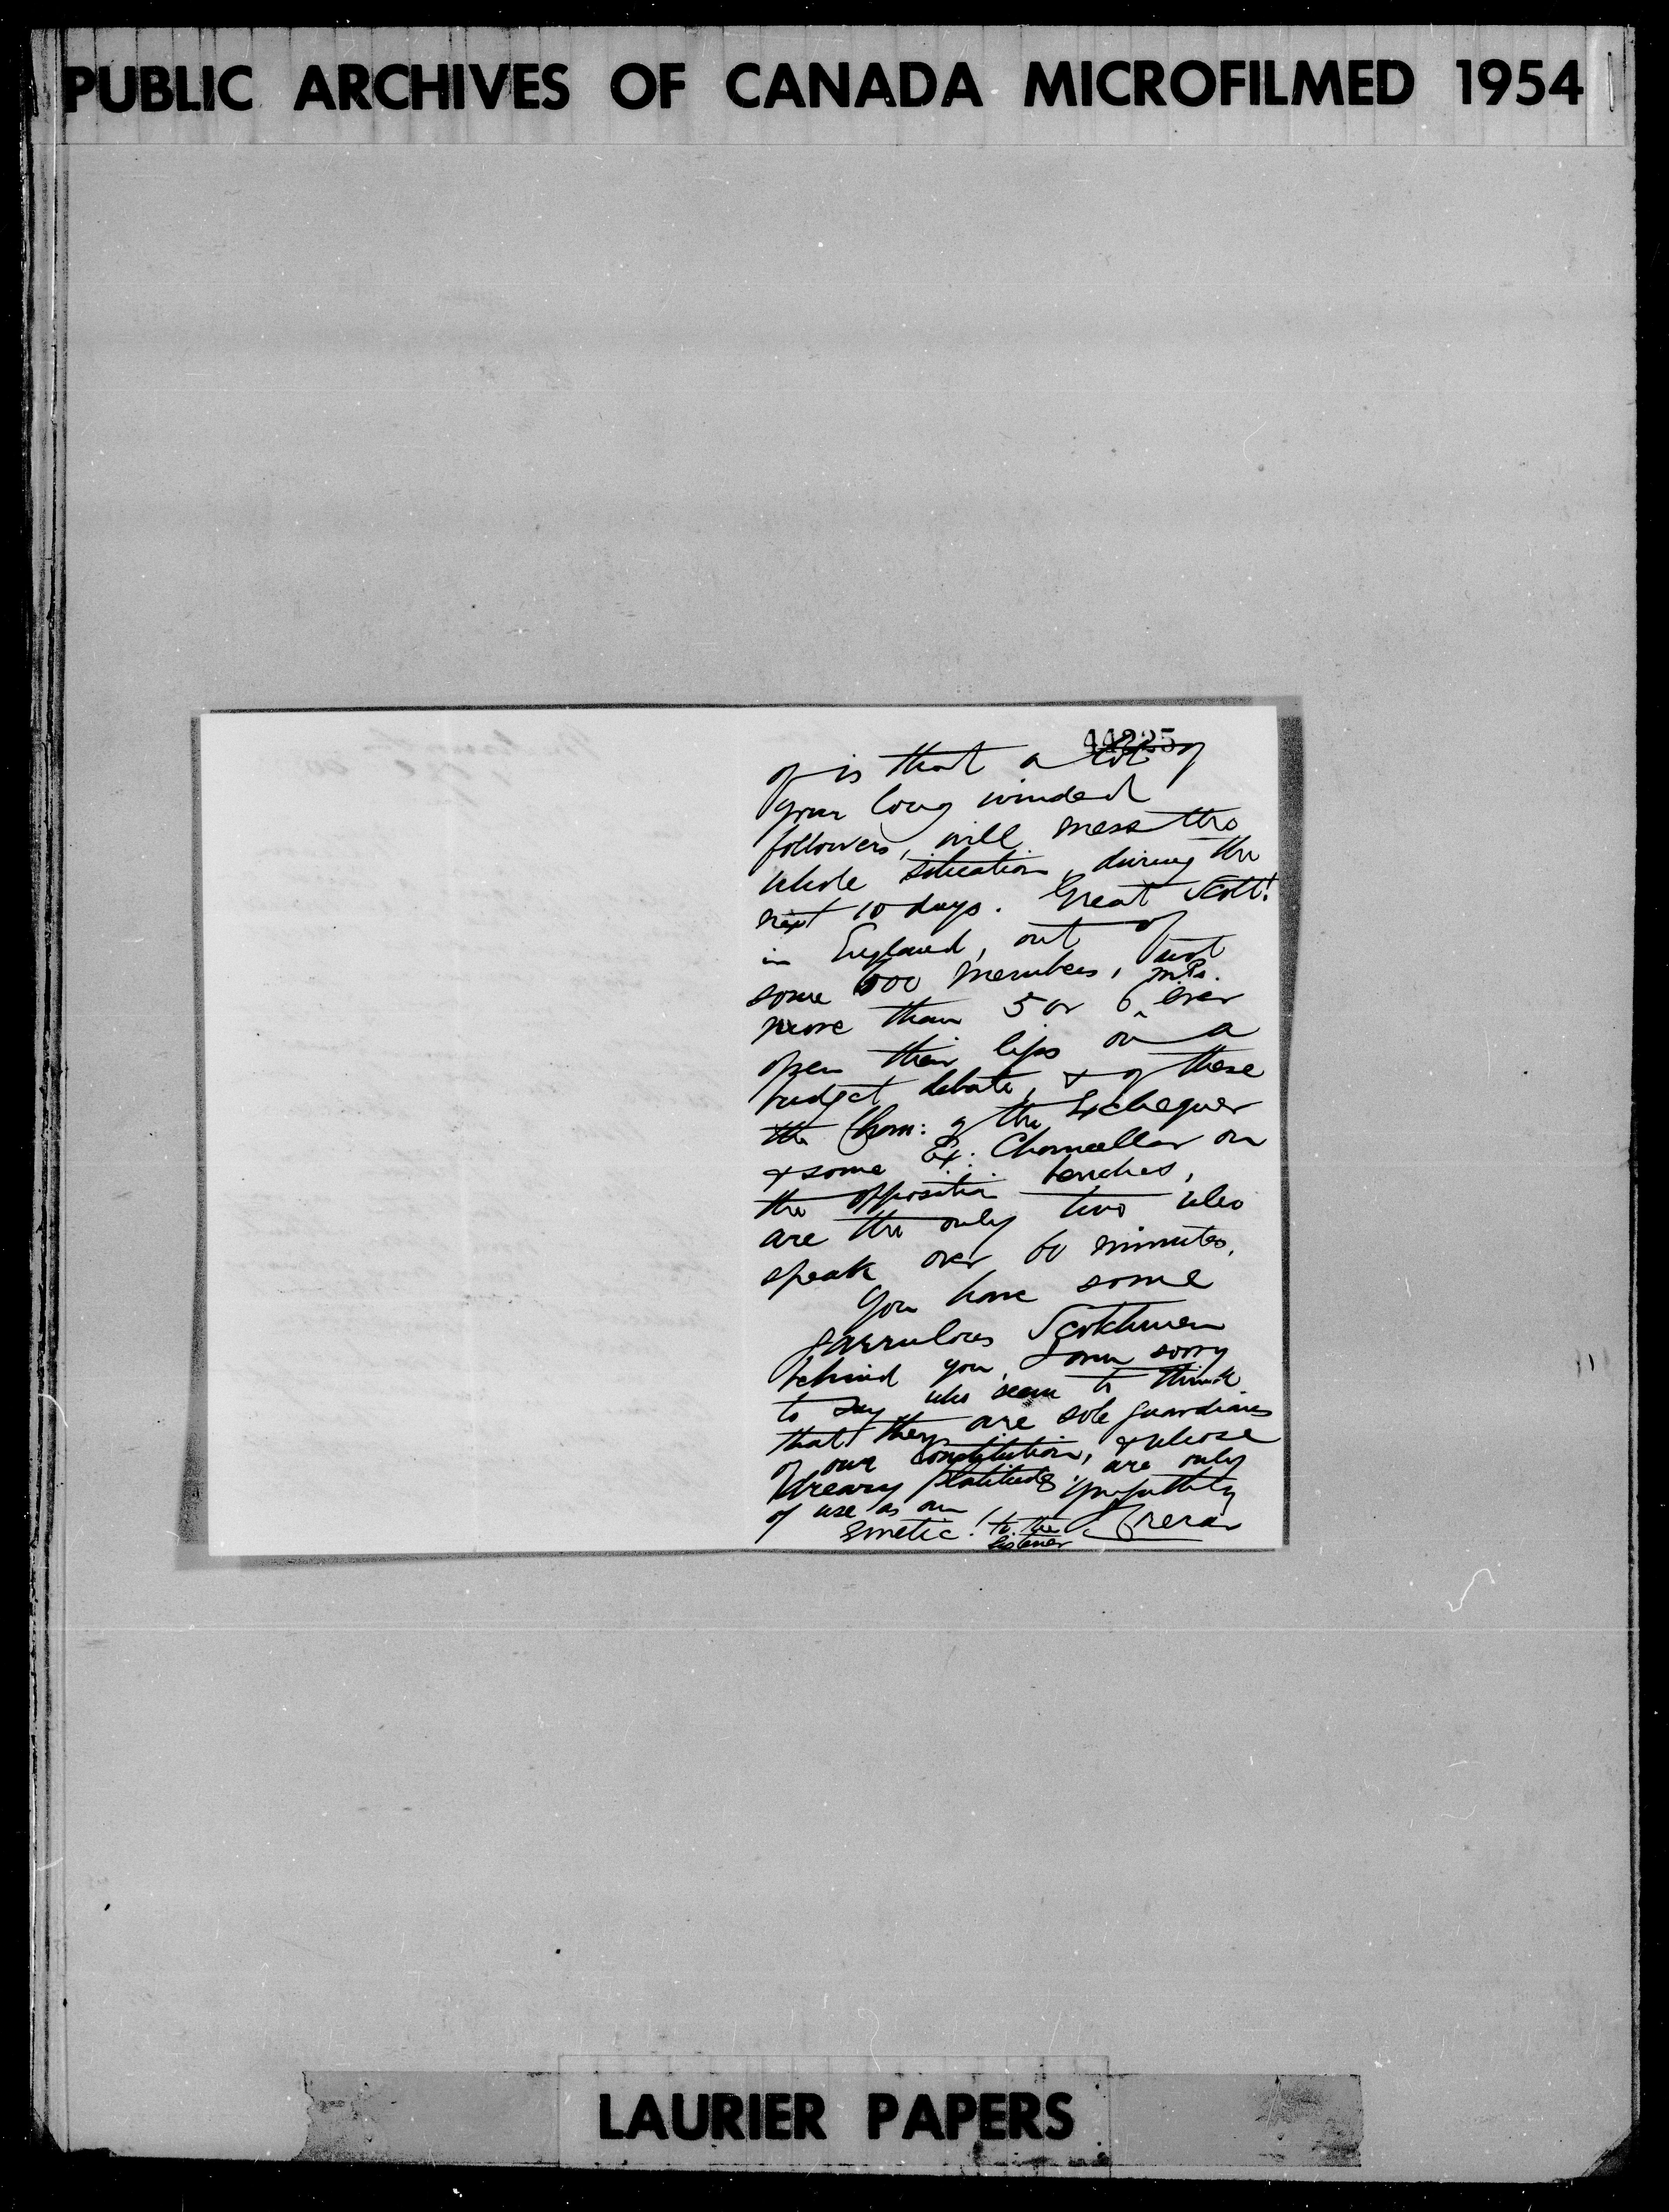 PUBLIC ARCHIVES OF CANADA MICROFILMED 1954
44225
of is that a lot of
your long winded
followers, will mess the
whole situation, during the
next 10 days. Great Scott!
in England, out of
some 600 members, not
more than 5 or 6 M.Ps. ever
open their lips on a
budget debate, & of these
the Chan: of the Exchequer
& some Ex: Chancellor on
the opposition benches,
are the only two who
speak over 60 minutes.
You have some
garrulous Scotchmen
behind you, I am sorry
to say who seem to think
that they are sole guardians
of our Constitution, & whose
dreary platitudes are only
of use as an
emetic! to the listener
LAURIER PAPERS